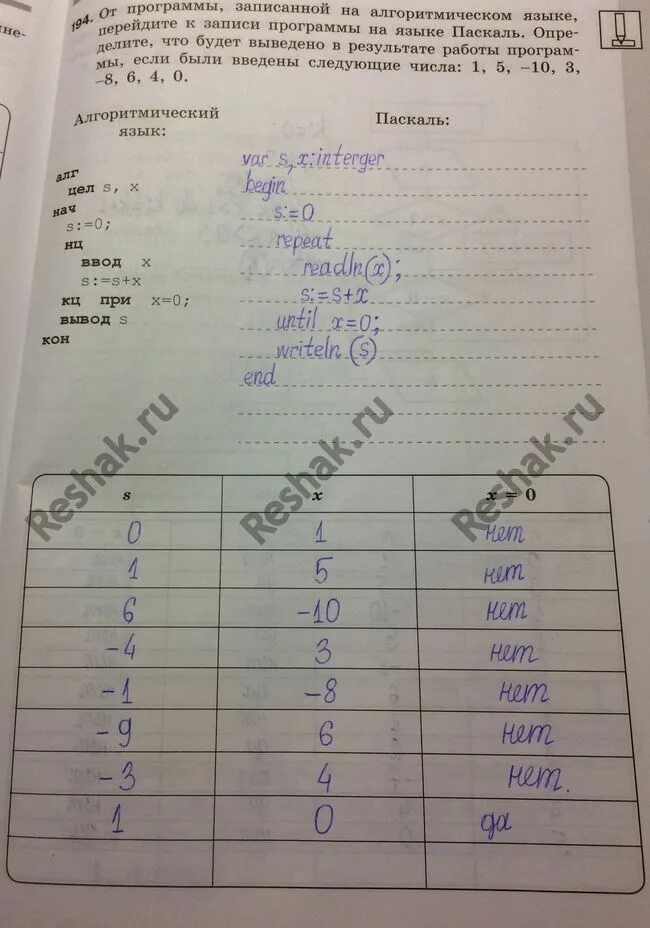 не-
194. От программы, записанной на алгоритмическом языке,
перейдите к записи программы на языке Паскаль. Опре-
делите, что будет выведено в результате работы програм-
мы, если были введены следующие числа: 1, 5, –10, 3,
–8, 6, 4, 0.
Алгоритмический
язык:
алг
цел s, x
нач
s:=0;
нц
ввод x
s:=s+x
кц при x=0;
вывод s
кон
Паскаль:
var s, x:interger
begin
s:=0
repeat
readln(x);
s:=s+x
until x=0;
writeln (s)
end
s x x = 0
0 1 нет
1 5 нет
6 –10 нет
–4 3 нет
–1 –8 нет
–9 6 нет
–3 4 нет.
1 0 да
Reshak.ru
Reshak.ru
Reshak.ru